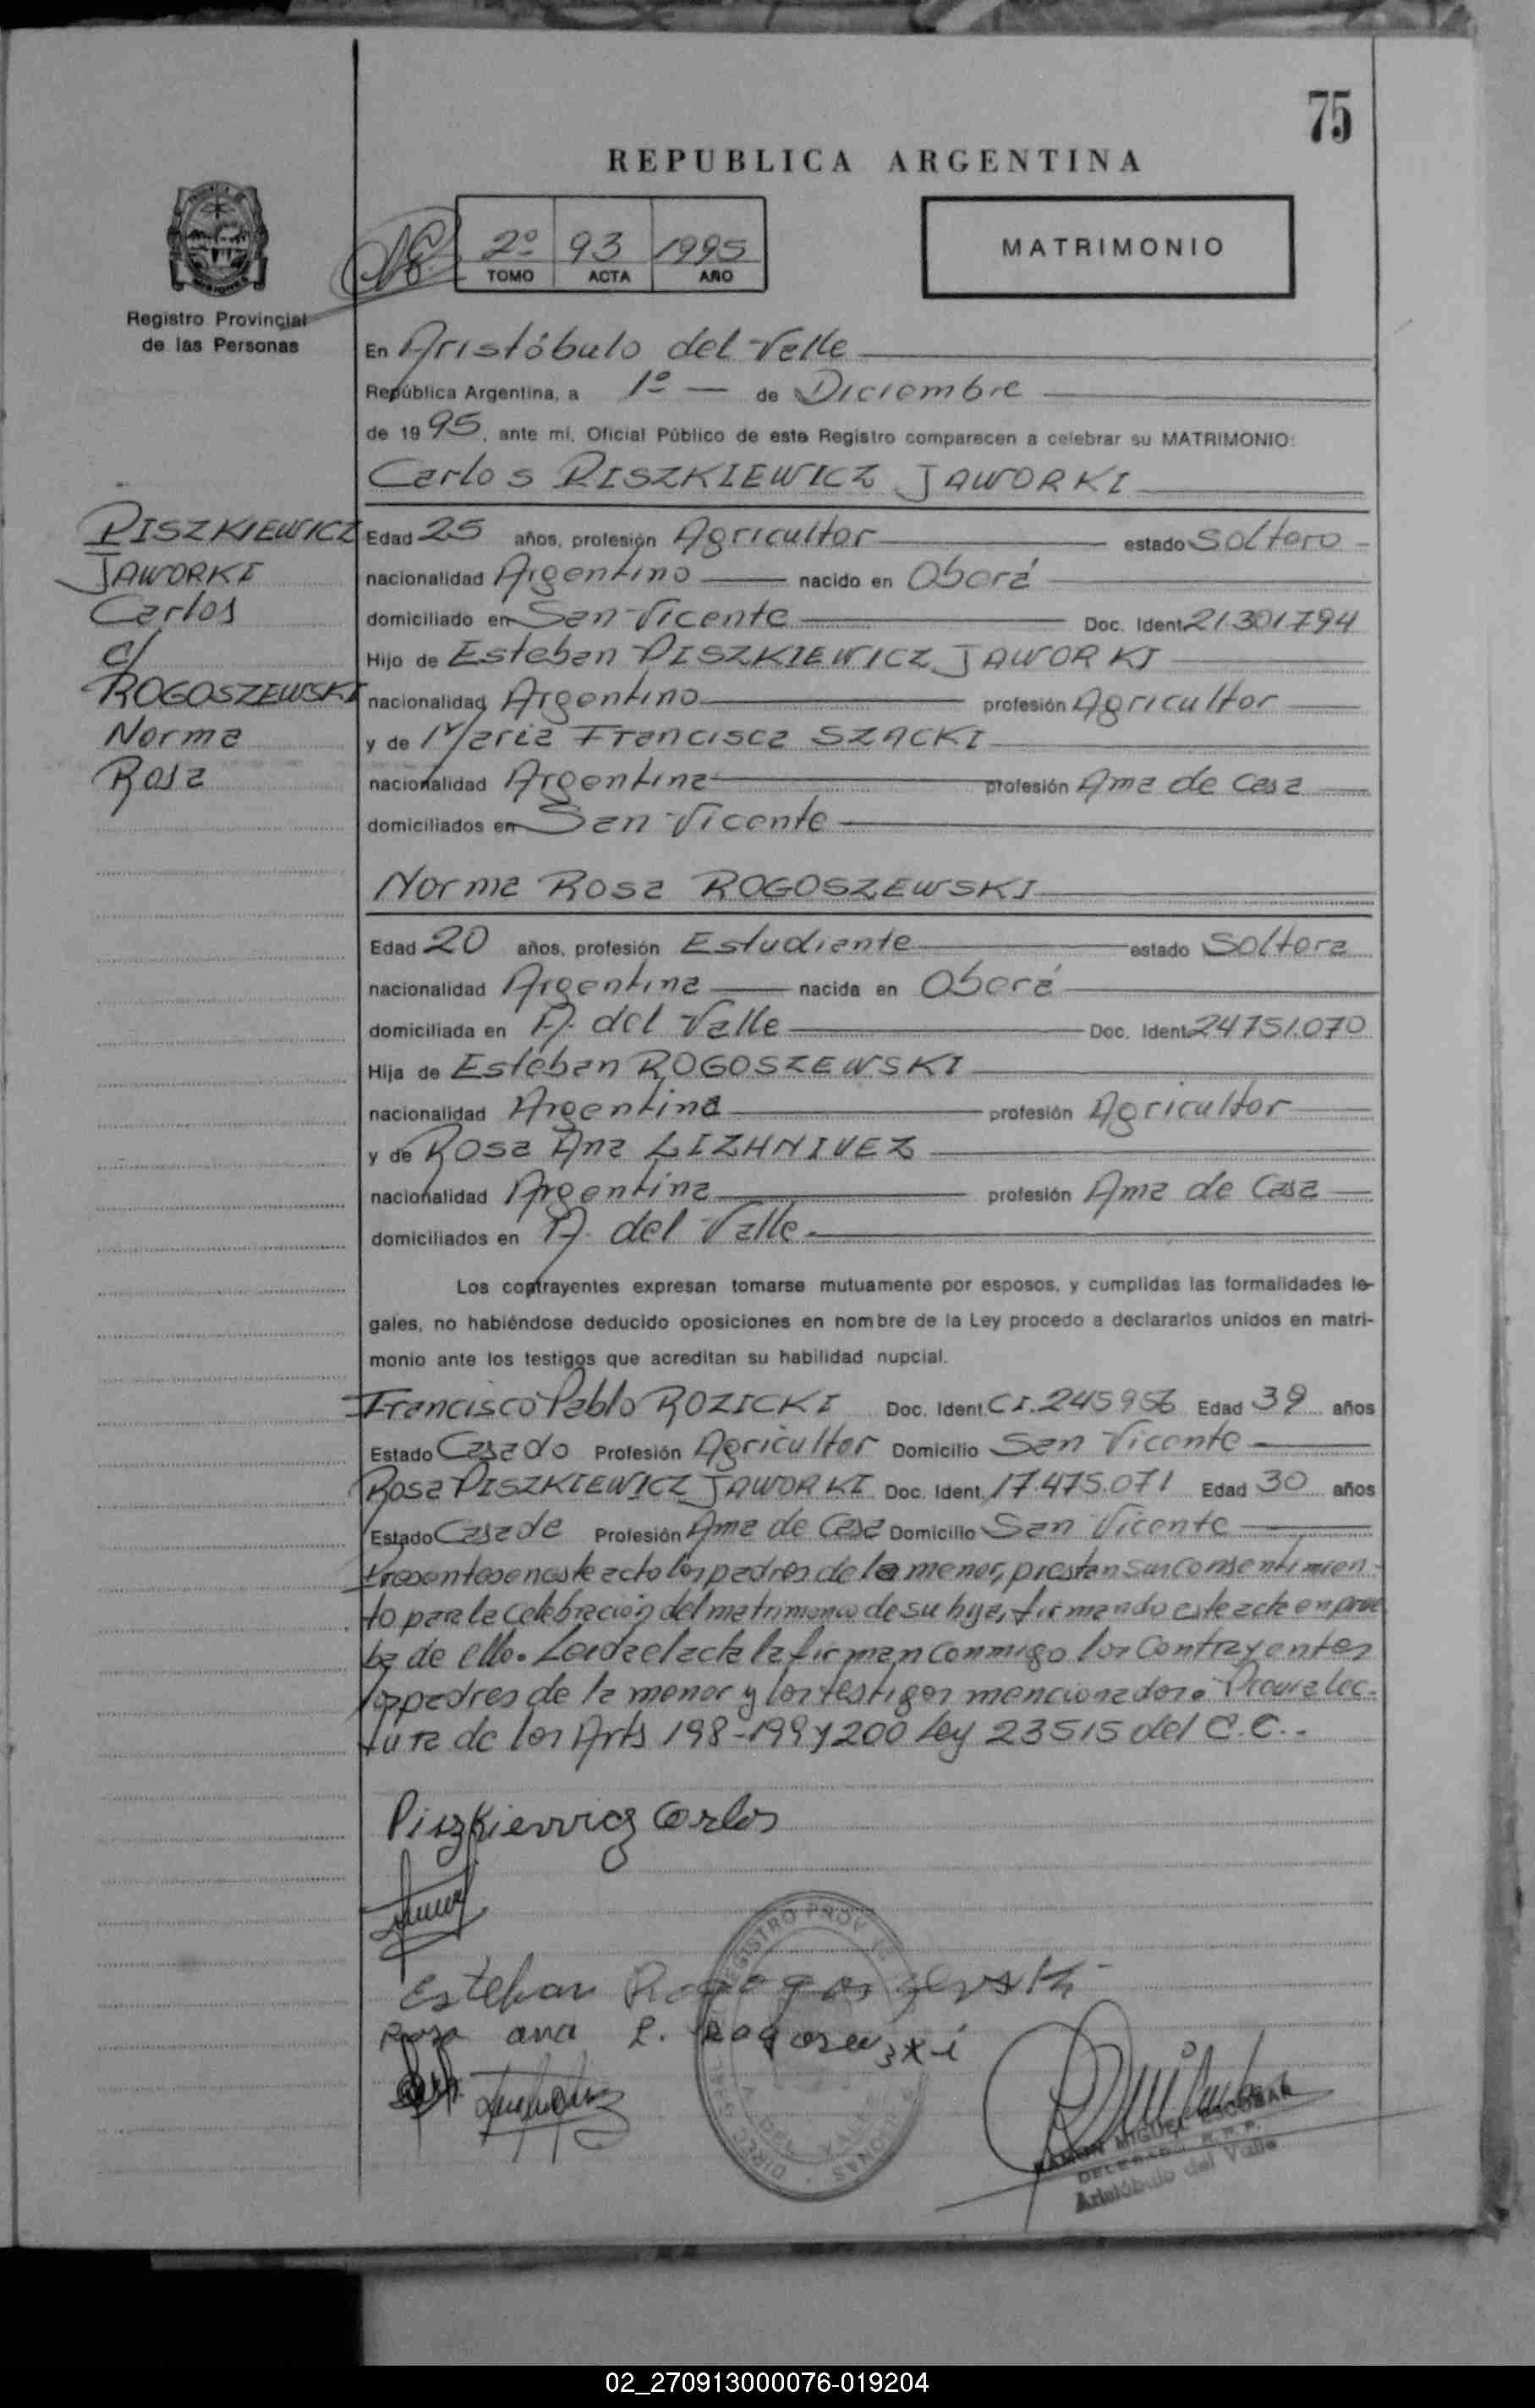 75
REPUBLICA ARGENTINA
2º 93 1995
TOMO ACTA AÑO
MATRIMONIO
Registro Provincial
de las Personas
En Aristóbulo del Valle
República Argentina, a 1º — de Diciembre
de 1995, ante mí, Oficial Público de este Registro comparecen a celebrar su MATRIMONIO:
Carlos PISZKIEWICZ JAWORKI
PISZKIEWICZ
JAWORKI
Carlos
c/
ROGOSZEWSKI
Norma
Rosa
Edad 25 años, profesión Agricultor estado Soltero
nacionalidad Argentino nacido en Oberá
domiciliado en San Vicente Doc. Ident. 21.301.794
Hijo de Esteban PISZKIEWICZ JAWORKI
nacionalidad Argentino profesión Agricultor
y de Maria Francisca SZACKI
nacionalidad Argentina profesión Ama de casa
domiciliados en San Vicente
Norma Rosa ROGOSZEWSKI
Edad 20 años, profesión Estudiante estado Soltera
nacionalidad Argentina nacida en Oberá
domiciliada en A. del Valle Doc. Ident. 24.751.070
Hija de Esteban ROGOSZEWSKI
nacionalidad Argentina profesión Agricultor
y de Rosa Ana LIZHNIVEZ
nacionalidad Argentina profesión Ama de Casa
domiciliados en A. del Valle.
Los contrayentes expresan tomarse mutuamente por esposos, y cumplidas las formalidades le-
gales, no habiéndose deducido oposiciones en nombre de la Ley procedo a declararlos unidos en matri-
monio ante los testigos que acreditan su habilidad nupcial.
Francisco Pablo ROZICKI Doc. Ident. C.I. 245956 Edad 39 años
Estado Casado Profesión Agricultor Domicilio San Vicente
Rosa PISZKIEWICZ JAWORKI Doc. Ident. 17.475.071 Edad 30 años
Estado Casada Profesión Ama de Casa Domicilio San Vicente
Presentes en este acto los padres de la menor, prestan su consentimien-
to para la celebración del matrimonio de su hija, firmando este acta en prue
ba de ello. Leida el acta la firman conmigo los contrayentes
los padres de la menor y los testigos mencionados. Previa lec-
tura de los Arts 198-199 y 200 Ley 23515 del C.C..
Piszkiewicz Carlos
Esteban Rogogoszewski
Rosa ana L. Rogoszewski
REGISTRO PROV
RAMON MIGUEL ESCOBAR
DELEGADO R.P.P.
Aristóbulo del Valle
02_270913000076-019204